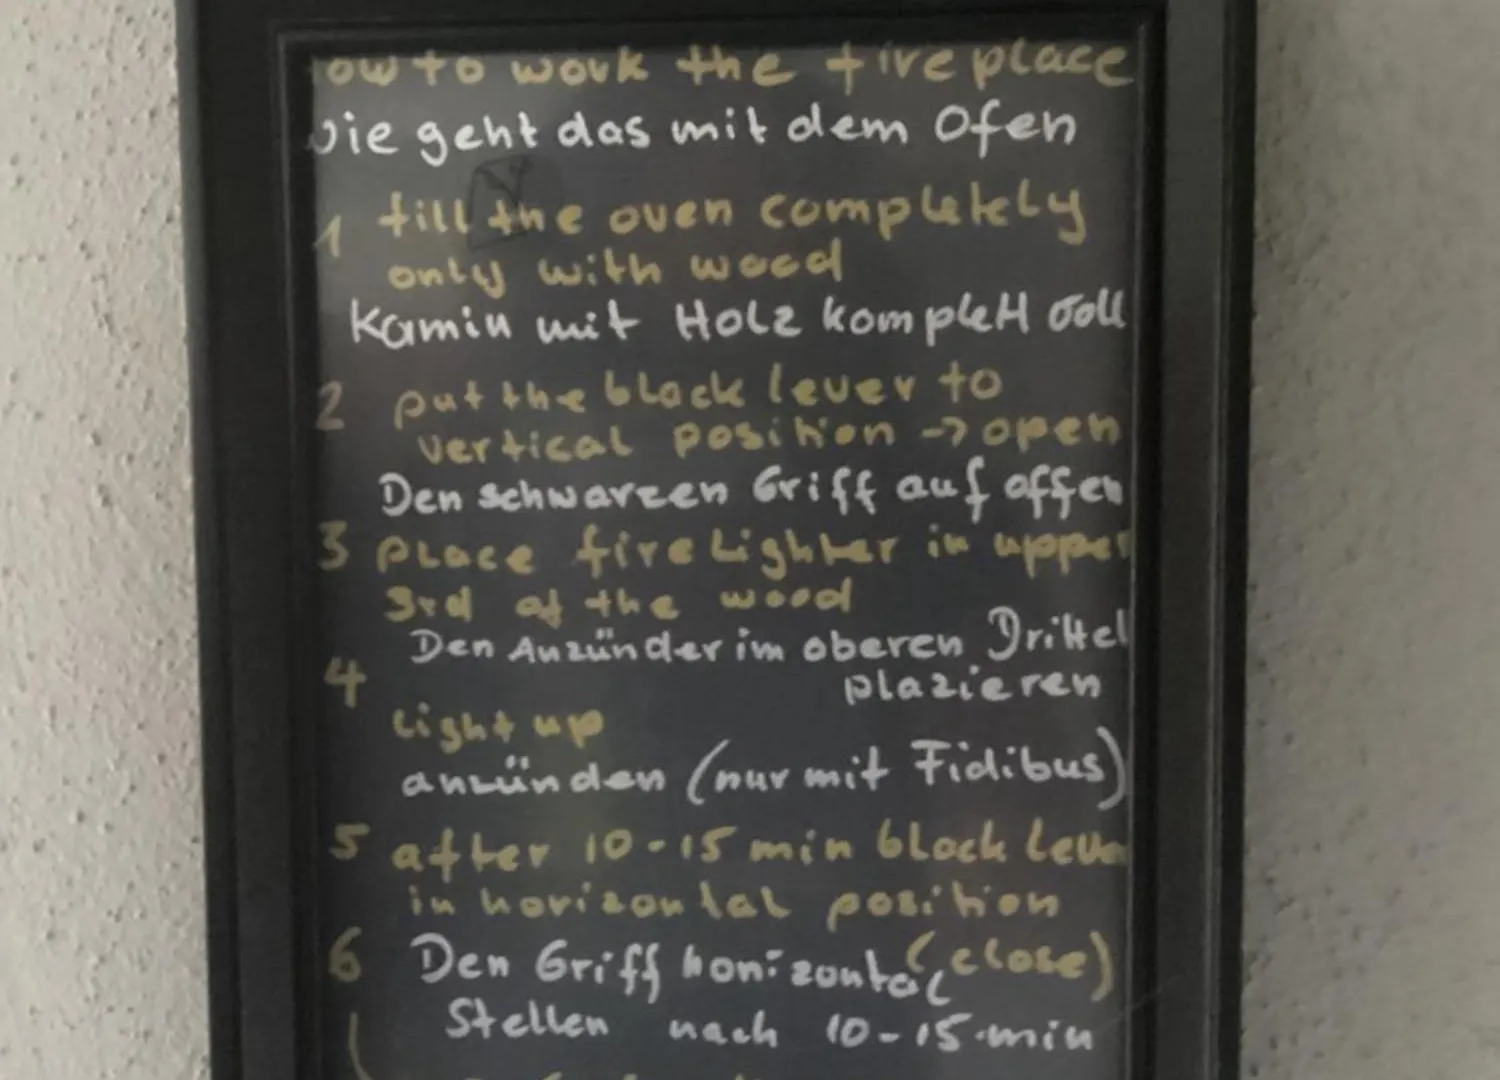 ow to work the fireplace
wie geht das mit dem Ofen
1 fill the oven completely
only with wood
Kamin mit Holz komplett voll
2 put the black lever to
vertical position → open
Den schwarzen Griff auf offen
3 place firelighter in upper
3rd of the wood
Den Anzünder im oberen Drittel
plazieren
4
light up
anzünden (nur mit Fidibus)
5 after 10-15 min black lever
in horizontal position
6 Den Griff horizontal (close)
stellen nach 10-15 min